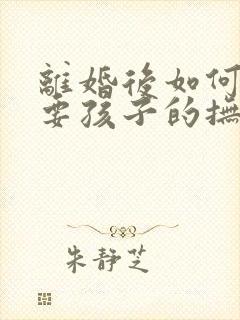 離婚後如何
要孩子的撫
朱靜芝